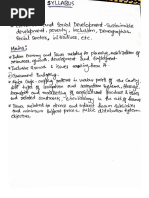 SYLLABUS
and Social Development - Sustainable
development, poverty, inclusion, Demographics,
Social Sector, initiatives, etc.
Mains:
Indian Economy and issues relating to planning, mobilization of
resources, growth, development and Employment.
Inclusive Growth & issues arising from it.
Government Budgeting.
Major Crops cropping patterns in various parts of the Country,
different types of irrigation and irrigation systems, storage,
transport and marketing of agricultural produce & issues
and related constraints; E-technology in the aid of farmers
issues related to direct & indirect farm subsidies
and minimum support prices; public distribution system-
objectives,